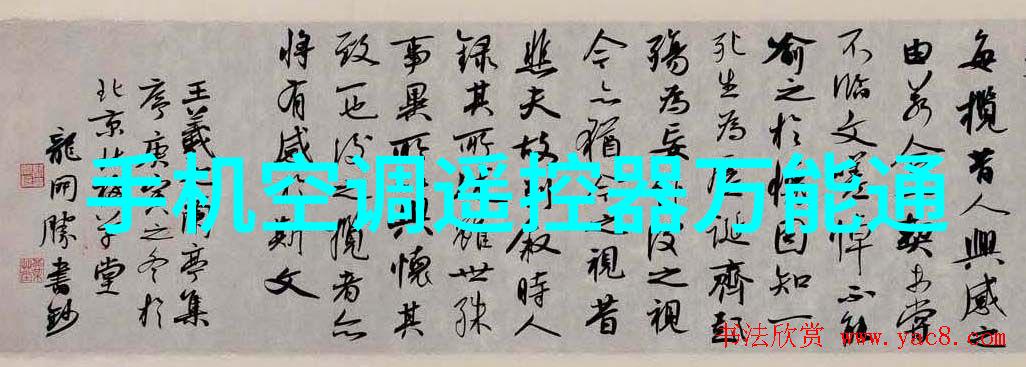 每攬昔人興感之
由若合契未嘗
不臨文嗟悼不能
喻之於懷固知一
死生為虛誕齊彭
殤為妄後之視
今亦猶今之視昔
悲夫故列敘時人
錄其所雖世殊
事異所懷其
致一也後之攬者亦
將有感斯文
王羲亭集
序庚寅之冬於
北京草堂
龍開勝書鈔
手机空调遥控器万能通
书法欣赏 www.yac8.com